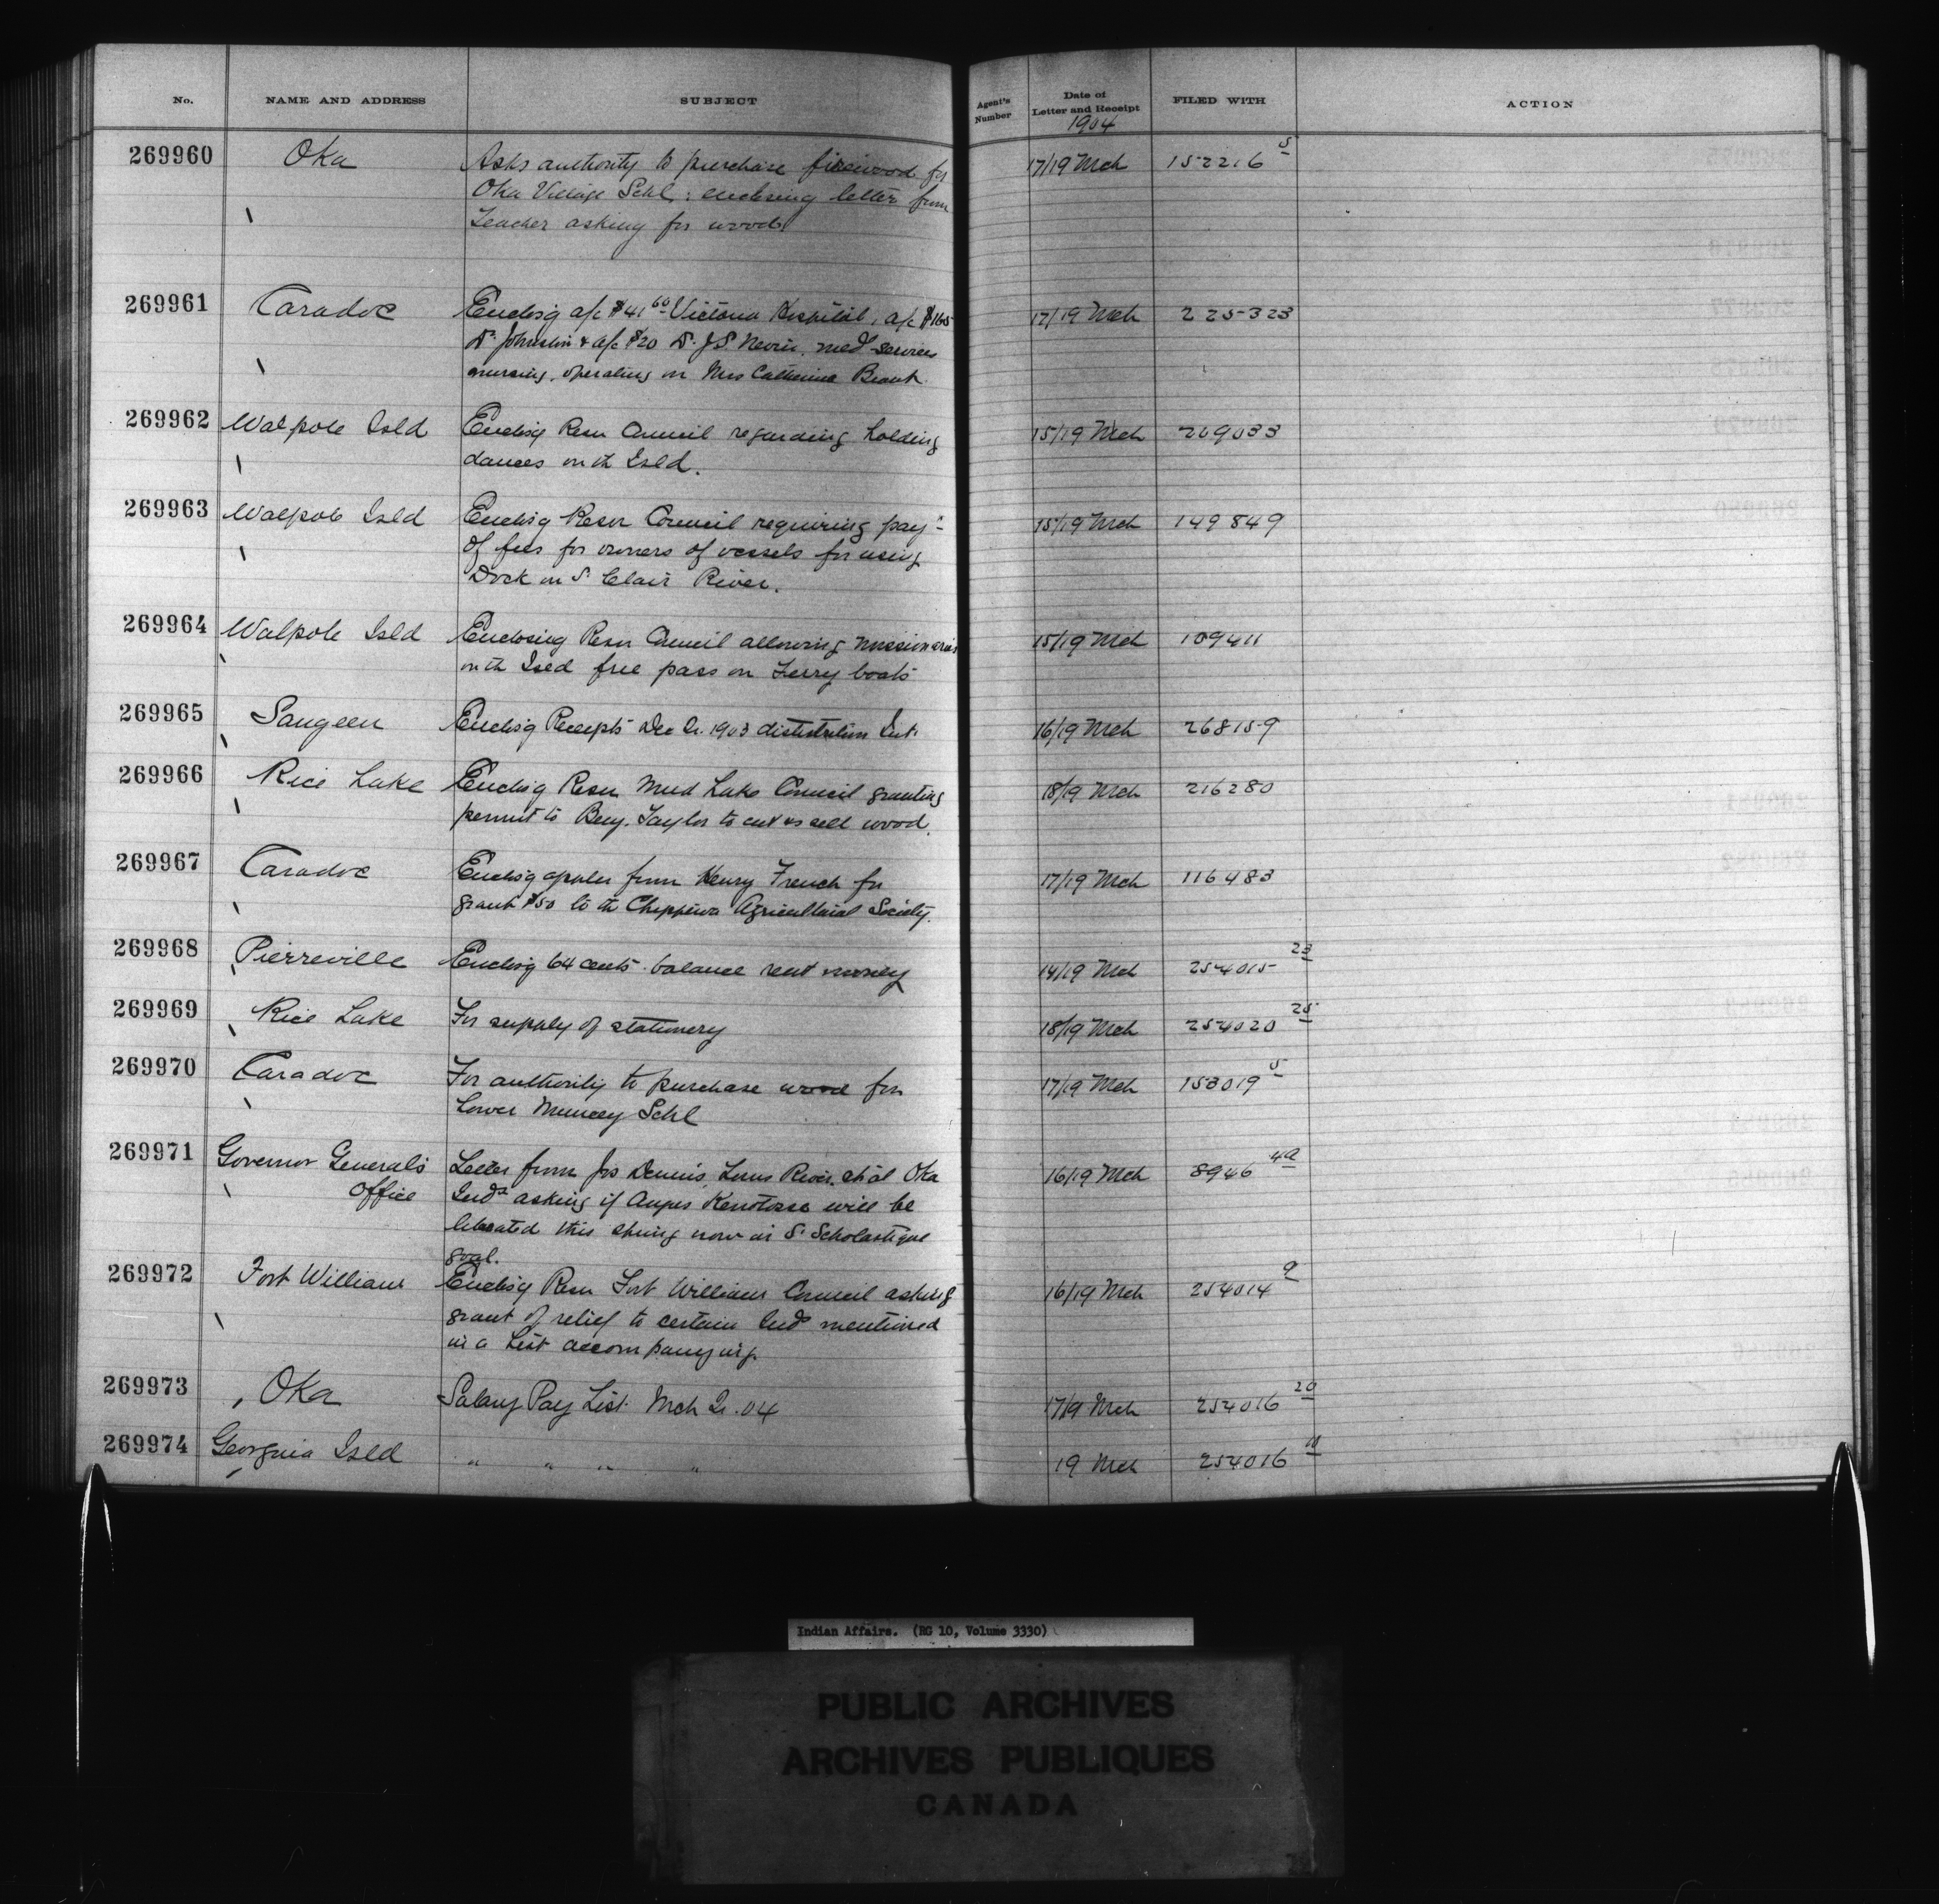 No. NAME AND ADDRESS SUBJECT Agent's Number Date of Letter and Receipt FILED WITH ACTION
1904
269960 Oka Asks authority to purchase firewood for 17/19 Mch 152216 5
Oka Village Schl; enclosing letter from
Teacher asking for wood
269961 Caradoc Enclos'g a/c $41 60 Victoria Hospital, a/c $165 17/19 Mch 225323
Dr. Johnston & a/c $20 Dr. J.S. Nevin, medl services
nursing, operating on Mrs Catherine Brant
269962 Walpole Isld Enclos'g Resn Council regarding holding 15/19 Mch 209033
dances on th Isld.
269963 Walpole Isld Enclos'g Resn Council requiring payt 15/19 Mch 149849
of fees for owners of vessels for using
Dock on St Clair River.
269964 Walpole Isld Enclosing Resn Council allowing missionaries 15/19 Mch 109411
on th Isld free pass on Ferry boats
269965 Saugeen Enclos'g Receipts Dec Qr. 1903 distribution Int. 16/19 Mch 268159
269966 Rice Lake Enclos'g Resn Mud Lake Council granting 18/19 Mch 216280
permit to Benj. Taylor to cut & sell wood.
269967 Caradoc Enclos'g applcn from Henry French for 17/19 Mch 116483
grant $50 to th Chippewa Agricultural Society.
269968 Pierreville Enclos'g 64 cents balance rent money 14/19 Mch 254015 23
269969 Rice Lake For supply of stationery 18/19 Mch 254020 25
269970 Caradoc For authority to purchase wood for 17/19 Mch 153019 5
Lower Muncey Schl
269971 Governor General's Letter from Jos Dennis, River, Oka 16/19 Mch 8946 4a
Office Inds asking if Angus will be
liberated this spring now in St Scholastique
goal.
269972 Fort William Enclos'g Resn Fort William Council asking 16/19 Mch 254014 9
grant of relief to certain Inds mentioned
in a List accompanying.
269973 Oka Salary Pay List Mch Qr. 04 17/19 Mch 254016 20
269974 Georgina Isld " " " " 19 Mch 254016 11
Indian Affairs. (RG 10, Volume 3330)
PUBLIC ARCHIVES
ARCHIVES PUBLIQUES
CANADA